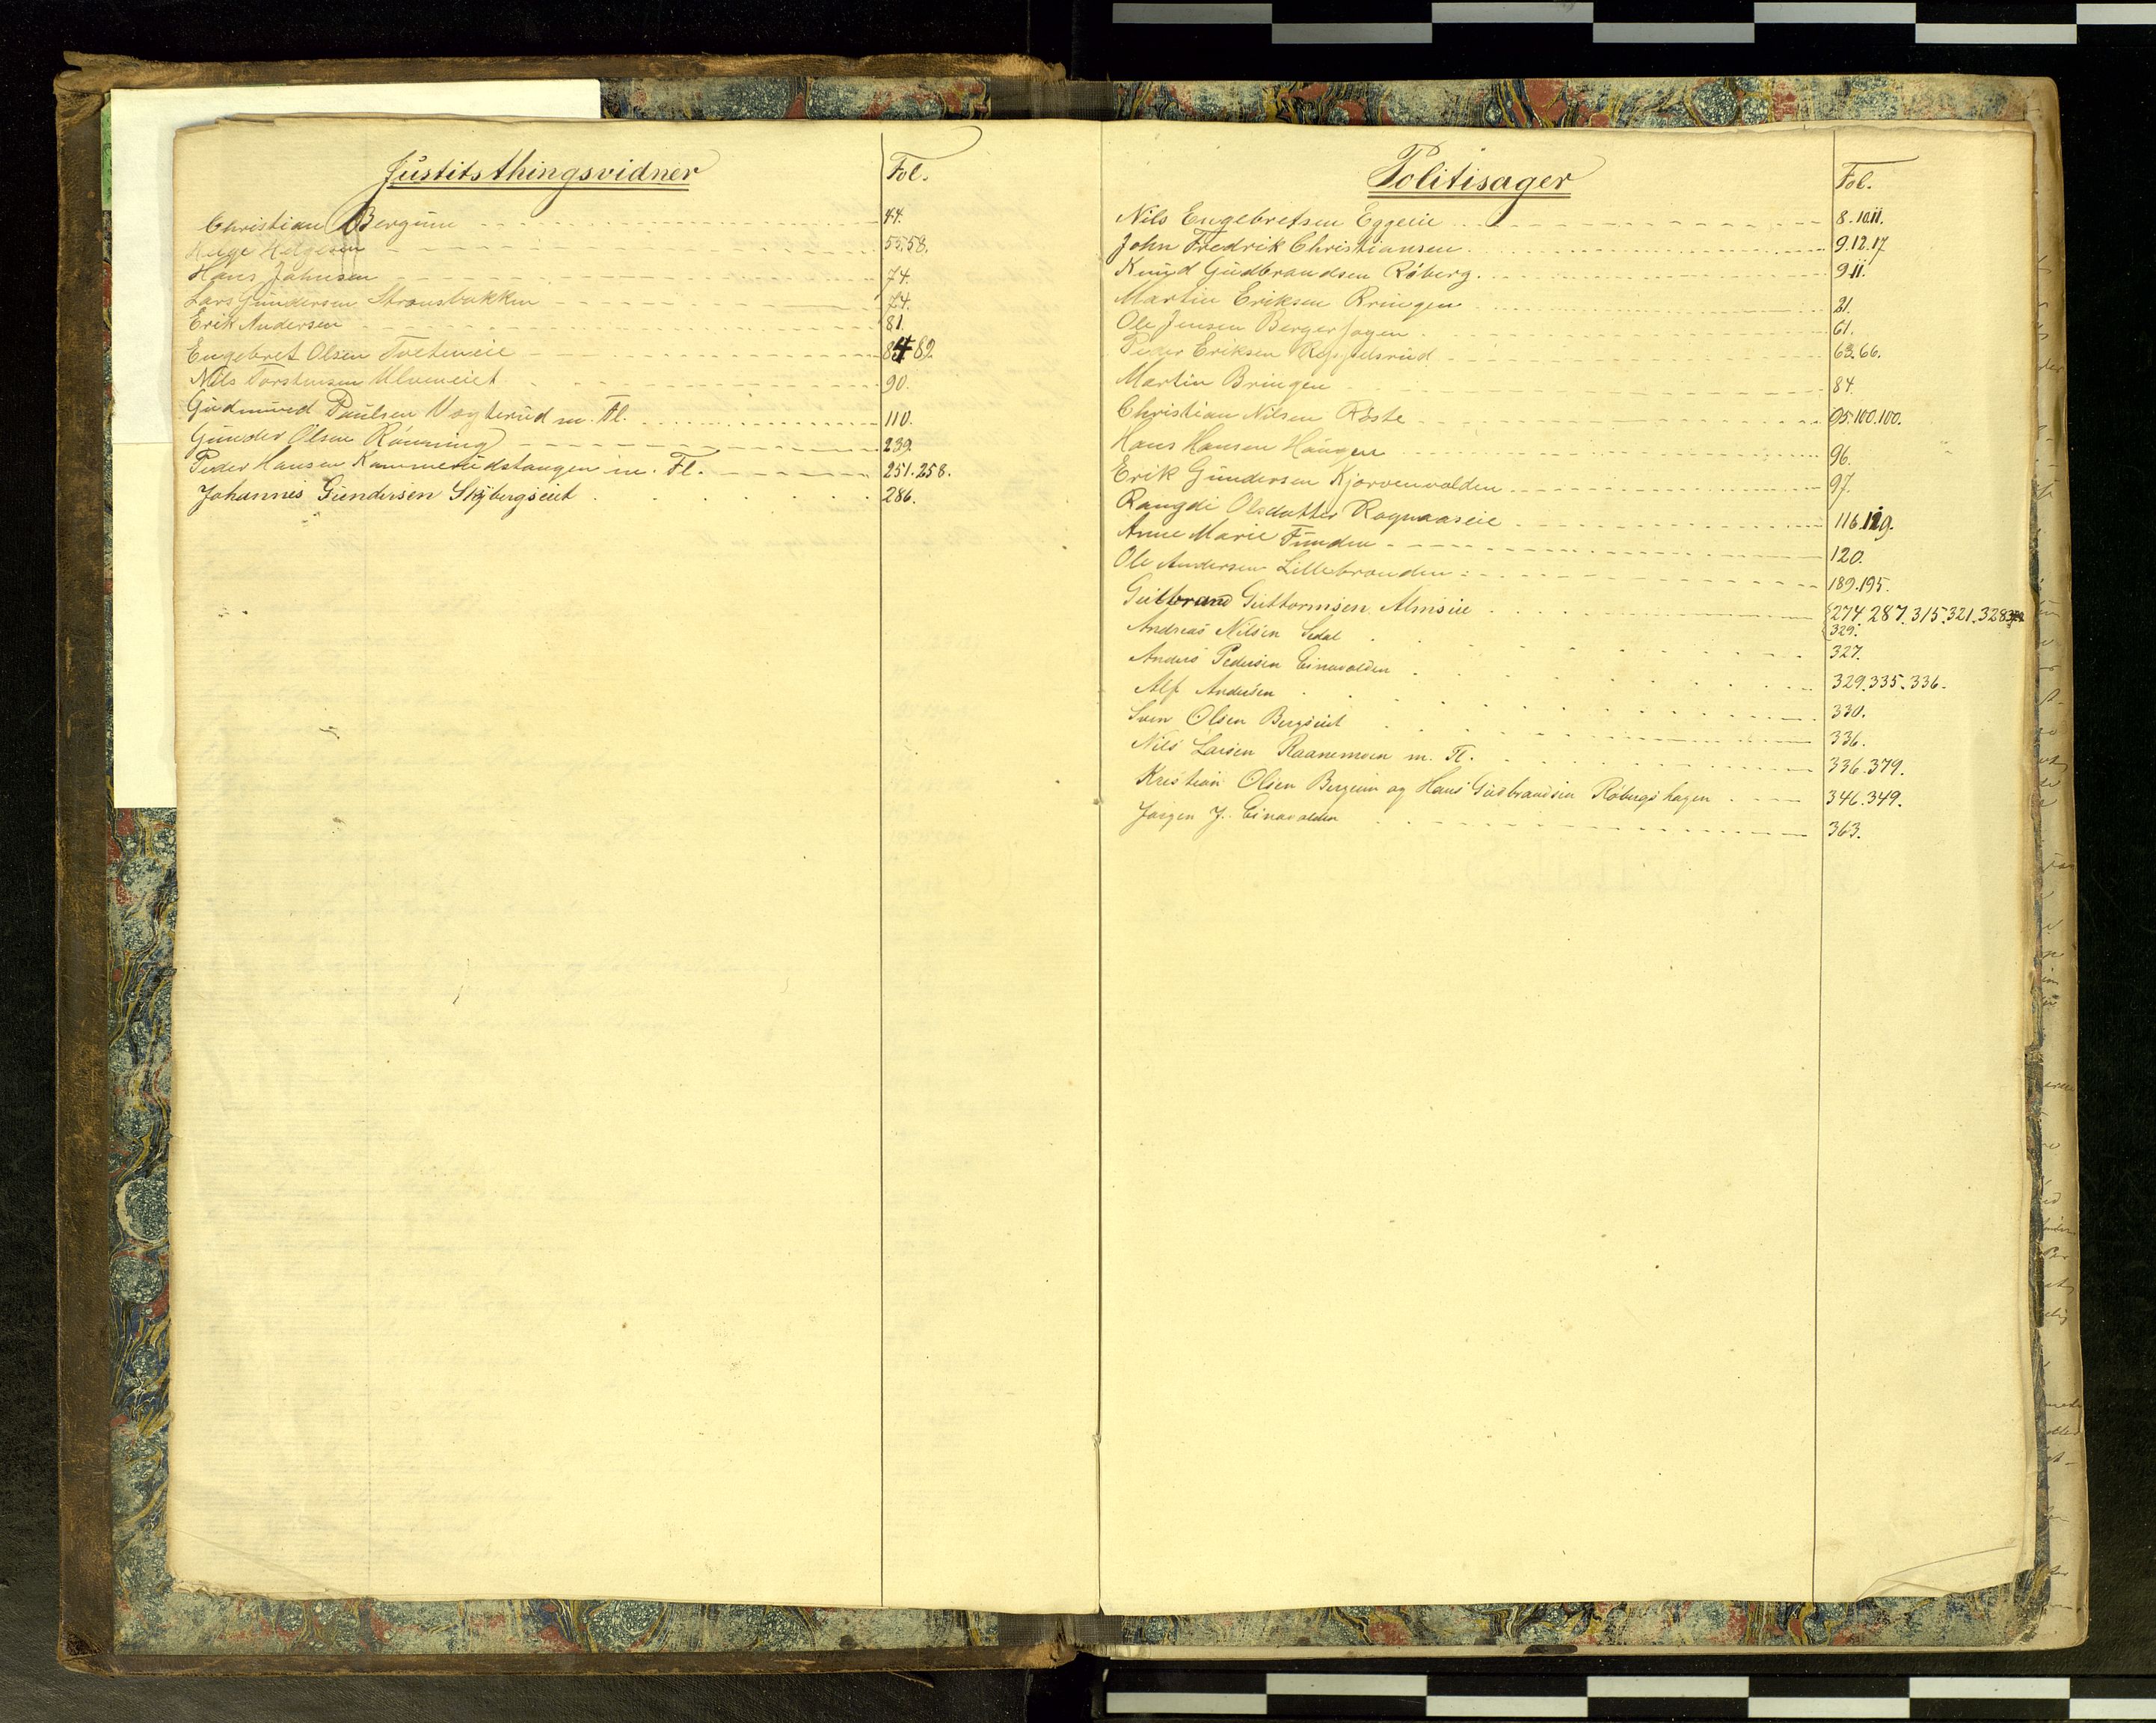 Justitsthingsvidner Fol.
Christian Bergum 44.
Helge Helgesen 55.58.
Hans Johnsen 74.
Lars Gundersen Stransbakken 74.
Erik Andersen 81.
Engebret Olsen Tveteneie 84 89.
Nils Torstensen Ulveneiet 90.
Gudmund Paulsen Vagterud m. Fl. 110.
Gunder Olsen Rønning 239.
Peder Hansen Kammerudstangen m. Fl. 251.258.
Johannis Gundersen Skjbergseiet 286.
Politisager Fol.
Nils Engebretsen Eggeeie 8.10.11.
John Fredrik Christiansen 9.12.17.
Knud Gudbrandsen Røberg. 9.11.
Martin Eriksen Bringen 21.
Ole Jensen Berger 61.
Peder Eriksen 63.66.
Martin Bringen 84.
Christian Nilsen Røste 95.100.100.
Hans Hansen Haugen 96.
Erik Gundersen Kjørvenvolden 97.
Rangdi Olsdatter Rognaaseie 116.119.
Anne Marie Funden 120.
Ole Andersen Lillebraaden 189.195.
Gulbrand Guttormsen Almseie 274.287.315.321.328
329.
Andreas Nilsen Sedal 327.
Anders Pedersen Einavolden 329.335.336.
Alf Andersen 330.
Sven Olsen Bergseiet 336.
Nils Larsen Raanemoen m. Fl. 336.379.
Kristian Olsen Bergum og Hans Gudbrandsen Røbergshagen 346.349.
Jørgen J. Einavolden 363.